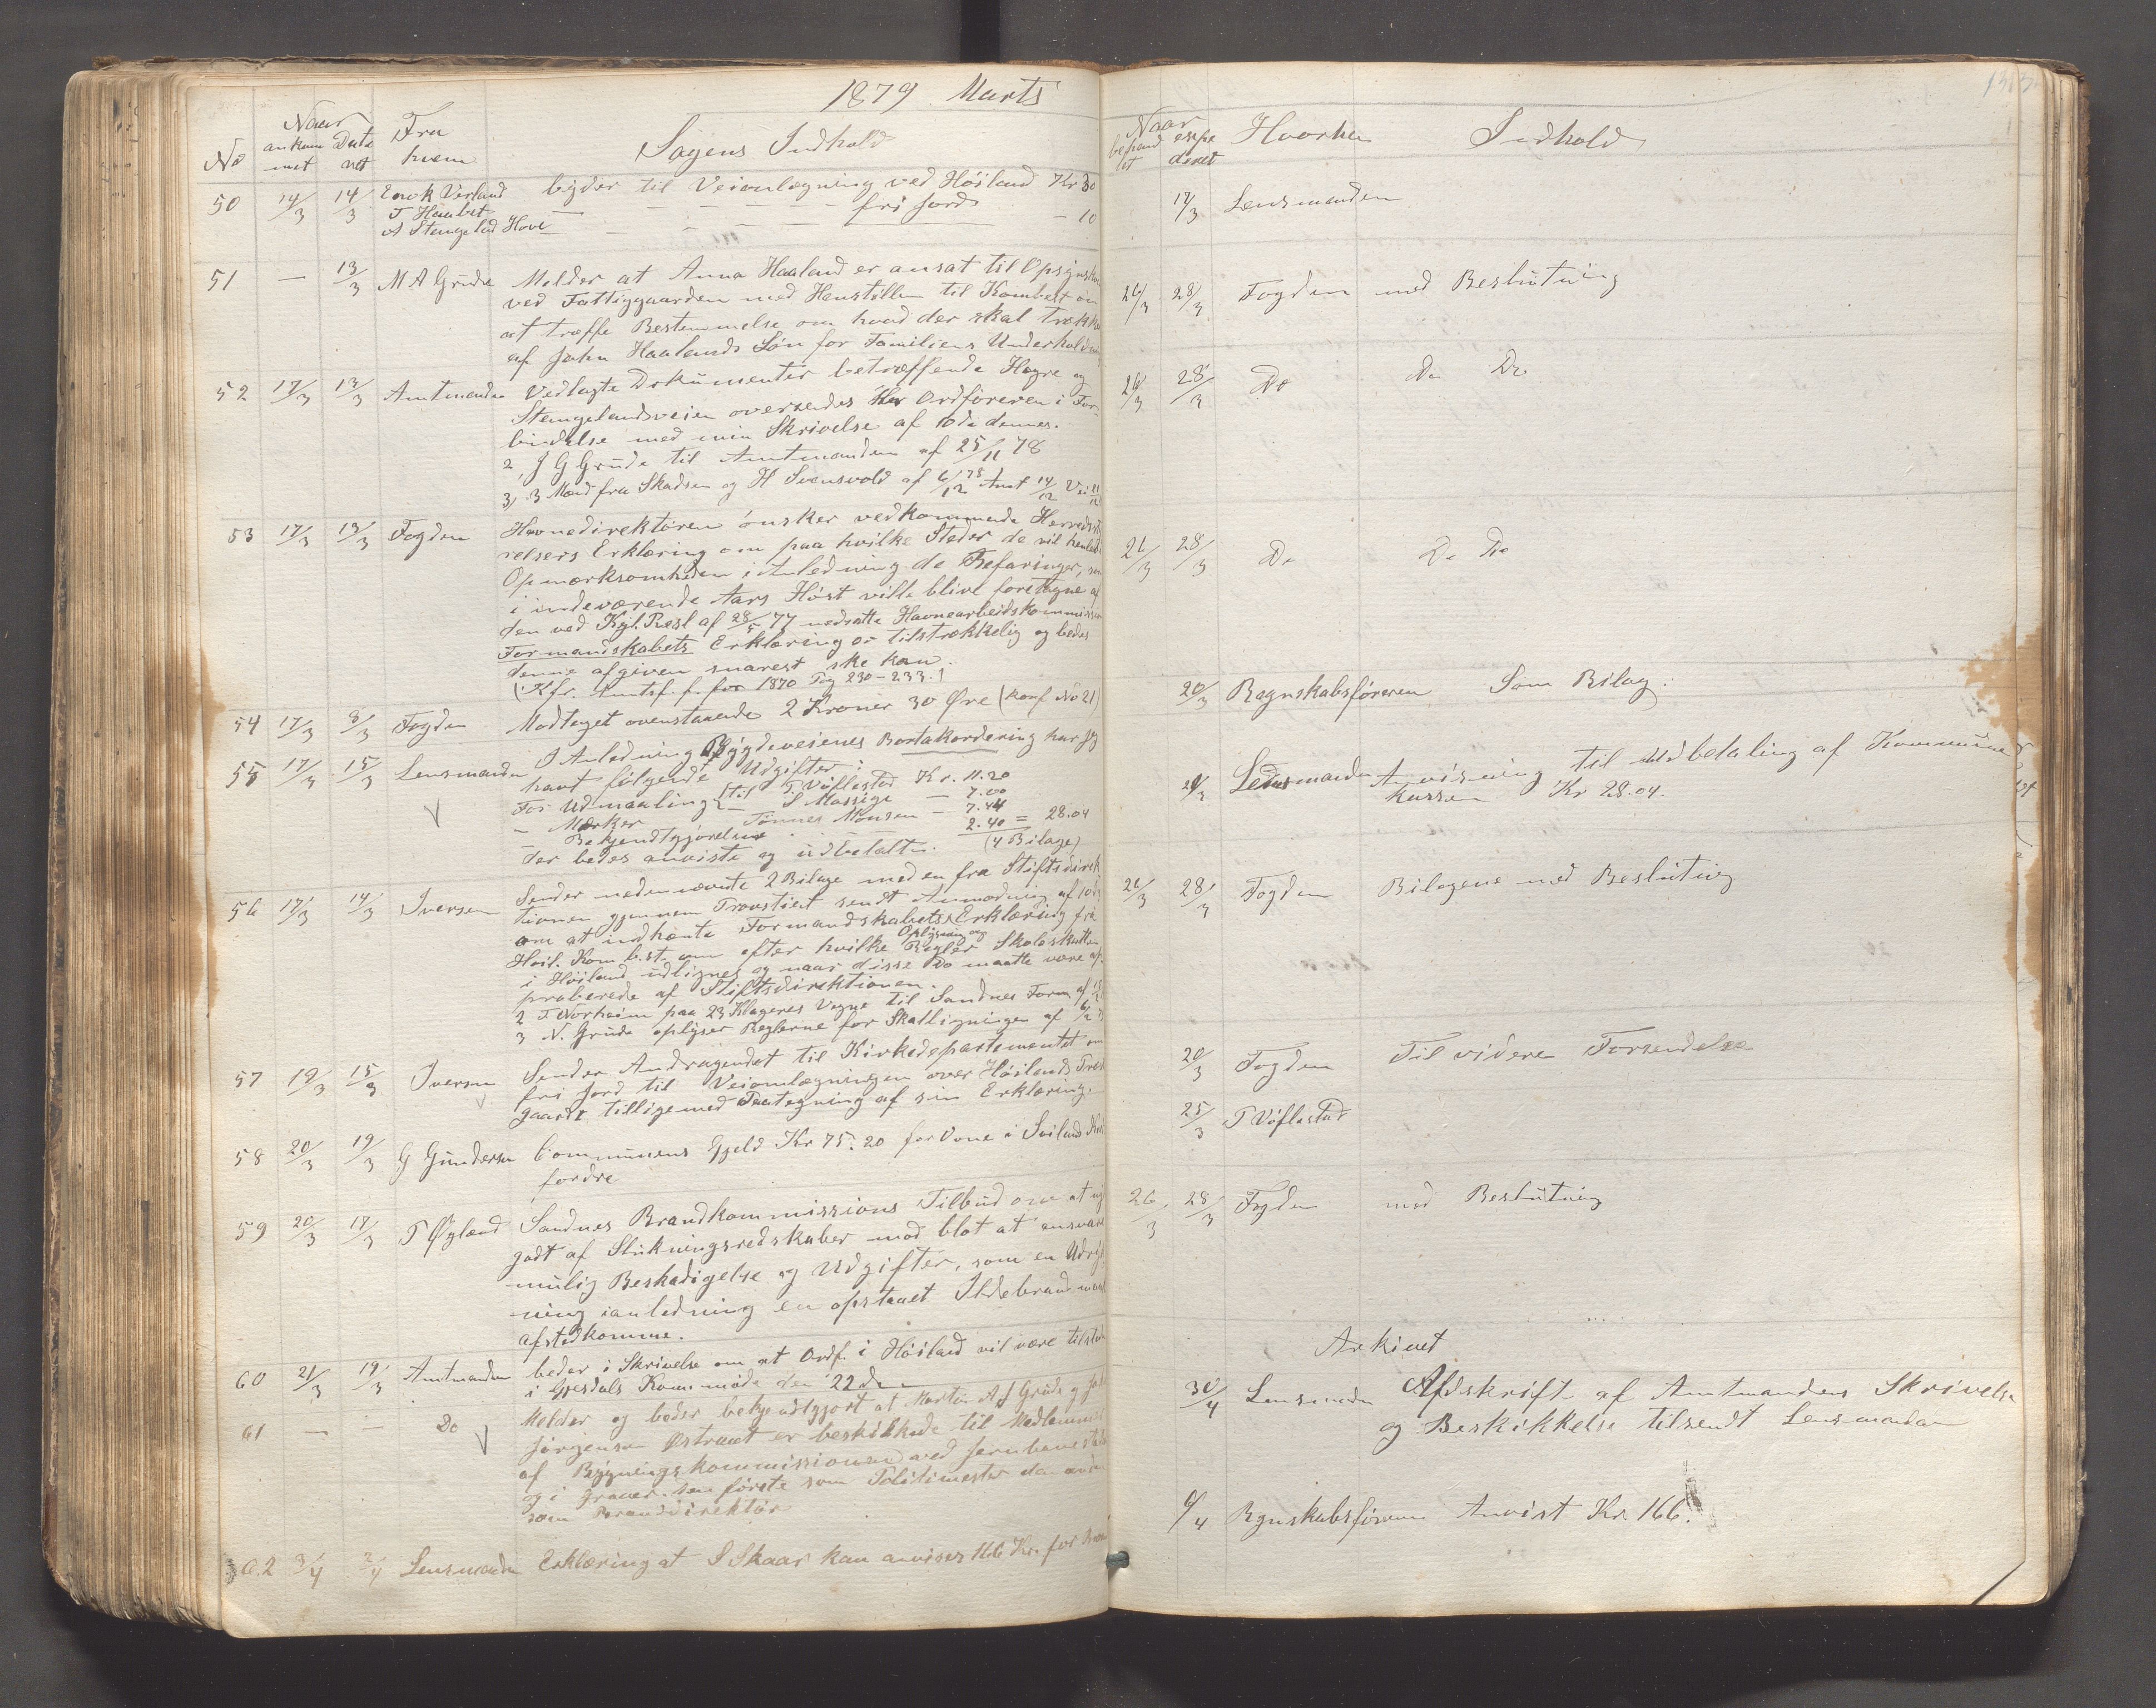 1879 Marts
No
Naar
ankom
met
Date
ret
Fra
hvem
Sagens Indhold
50 14/3 14/3 Enok Verland byder til Veiomlægning ved Höiland Kr 30
T Haabet — — — — — fri Jord
A Stangeland Hove — — — — — 10
51 — 13/3 M A Grude Melder at Anna Haaland er ansat til Opsyns
ved Fattiggaarden med Henstillen til Kombest om
at træffe Bestemmelse om hvad der skal trækkes
af John Haalands Løn for Familiens Underholdning
52 17/3 13/3 Amtmanden Vedlagte Dokumenter betræffende Hogre og
Stangelandsveien oversendes Hr Ordföreren i For-
bindelse med min Skrivelse af 10de dennes.
2, J G Grude til Amtmanden af 25/11 78
3, 3 Mænd fra Skadsem og H Svensvold af 6/12 78 Amt 14/12
53 17/3 13/3 Fogden Havnedirektören önsker vedkommende Herredsty
relsers Erklæring om paa hvilke Steder de vil henlede
Opmærksomheden i Anledning de Befaringer, som
i indeværende Aars Höst ville blive foretagne af
den ved Kgl. Resl af 28/5 77 nedsatte Havnearbeidskommission
Formandskabets Erklæring er tilstrækkelig og bedes
denne afgiven snarest ske kan.
(Kfr. Amtsf. f. for 1870 Pag 230-233.)
54 17/3 8/3 Fogden Modtaget ovenstaaende 2 Kroner 30 Øre (konf No 21)
55 17/3 15/3 Lensmanden I Anledning Bygdeveienes Bortakkordering har jeg
havt følgende Udgifter:
For Udmaaling til T Vöflestad Kr. 11.20
— S Massige — 7.00
— Mærker — Tönnes Monsen — 7.44
Bekjendtgjörelser — 2.40 = 28.04
der bedes anviste og udbetalte. (4 Bilage)
56 17/3 14/3 Iversen Sender nedennævnte 2 Bilage med en fra Stiftsdirek
tionen gjennem Provstiet sendt Anmodning af
om at indhente Formandskabets Erklæring fra
Oplysning og
Höil. Kom b.st. om efter hvilke Regler Skoleskatten
i Höiland udlignes og naar disse Do maatte være ap
proberede af Stiftsdirektionen.
2 T Norheim paa 23 Klageres Vegne til Sandnes Form af
3 N. Grude oplyser Reglerne for Skatligningen af 6/2
57 19/3 15/3 Iversen Sender Andragendet til Kirkedepartementet om
fri Jord til Veiomlægningen over Höilands Præste
gaard tilligemed Paategning af sin Erklæring.
58 20/3 19/3 G Gundersen Communens Gjeld Kr 75.20 for Vone i Soiland
fordre
59 20/3 17/3 T Øgland Sandnes Brandkommissions Tilbud om at nyde
godt af Slukningsredskaber mod blot at ansvare
mulig Beskadigelse og Udgifter, som en Udryk
ning i anledning en opstaaet Ildebrand maatte
afstedkomme.
60 21/3 19/3 Amtmanden beder i Skrivelse om at Ordf. i Höiland vil være tilstede
i Gjesdals Kommöde den 22de
61 — — Do Melder og beder bekjendtgjort at Martin A Grude og
Jörgensen Østraat er beskikkede til Medlemmer
af Bygningskommissionen ved Jernbanest
og i Graver. den förste som Politimester den anden
som Branddirektör
62 3/4 2/4 Lensmanden Erklæring at S Skaar kan anvises 166 Kr. for
Naar
behand
let
expe
deret
Hvorhen
Indhold
17/3 Lensmanden
26/3 28/3 Fogden med Beslutning
26/3 28/3 Do Do Do
26/3 28/3 Do Do Do
20/3 Regnskabsföreren Som Bilag.
Lensmanden Anvisning til Udbetaling af Kommune
kassen Kr 28.04.
26/3 28/3 Fogden Bilagene med Beslutning
20/3 Fogden Til videre Forsendelse
25/3 T Vöflestad
26/3 28/3 Fogden med Beslutning
Arkivet
30/4 Lensmanden Afdskrift af Amtmandens Skrivelse
og Beskikkelse tilsendt Lensmanden
6/4 Rgnskabsföreren Anvist Kr 166.